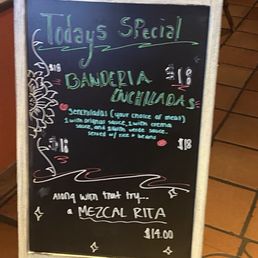 Todays Special
$18 $18
BANDERIA
ENCHILLADAS
3 enchiladas (your choice of meat)
1 with original sauce, 1 with crema
sauce, and 1 with verde sauce.
served w/ rice & beans
$18 $18
Along with that try...
a MEZCAL RITA
$14.00